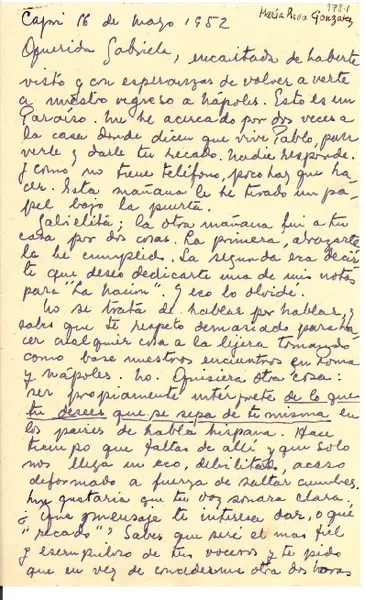 1784
María Rosa González
Capri 16 de marzo 1952
Querida Gabriela, encantada de haberte
visto y con esperanzas de volver a verte
a nuestro regreso a Nápoles. Esto es un
Paraíso. Me he acercado por dos veces a
la casa donde dicen que vive Pablo, para
verle y darle tu recado. Nadie responde.
Y como no tiene teléfono, poco hay que ha-
cer. Esta mañana le he tirado un pa-
pel bajo la puerta.
Gabrielita; la otra mañana fui a tu
casa por dos cosas. La primera, abrazarte
la he cumplido. La segunda era decir-
te que deseo dedicarte una de mis notas
para "La Nación". Y eso lo olvidé.
No se trata de hablar por hablar, y
sabes que te respeto demasiado para ha-
cer cualquier cosa a la lijera tomando
como base nuestros encuentros en Roma
y Nápoles. No. Quisiera otra cosa:
ser propiamente interprete de lo que
tu desees que se sepa de ti misma en
los países de habla hispana. Hace
tiempo que faltas de allí y que solo
nos llega un eco, debilitado, acaso
deformado a fuerza de saltar cumbres.
Me gustaría que tu voz sonara clara.
¿Qué mensaje te interesa dar, o qué
"recado"? Sabes que seré el mas fiel
y escrupuloso de tus voceros y te pido
que en vez de concederme otra dos horas